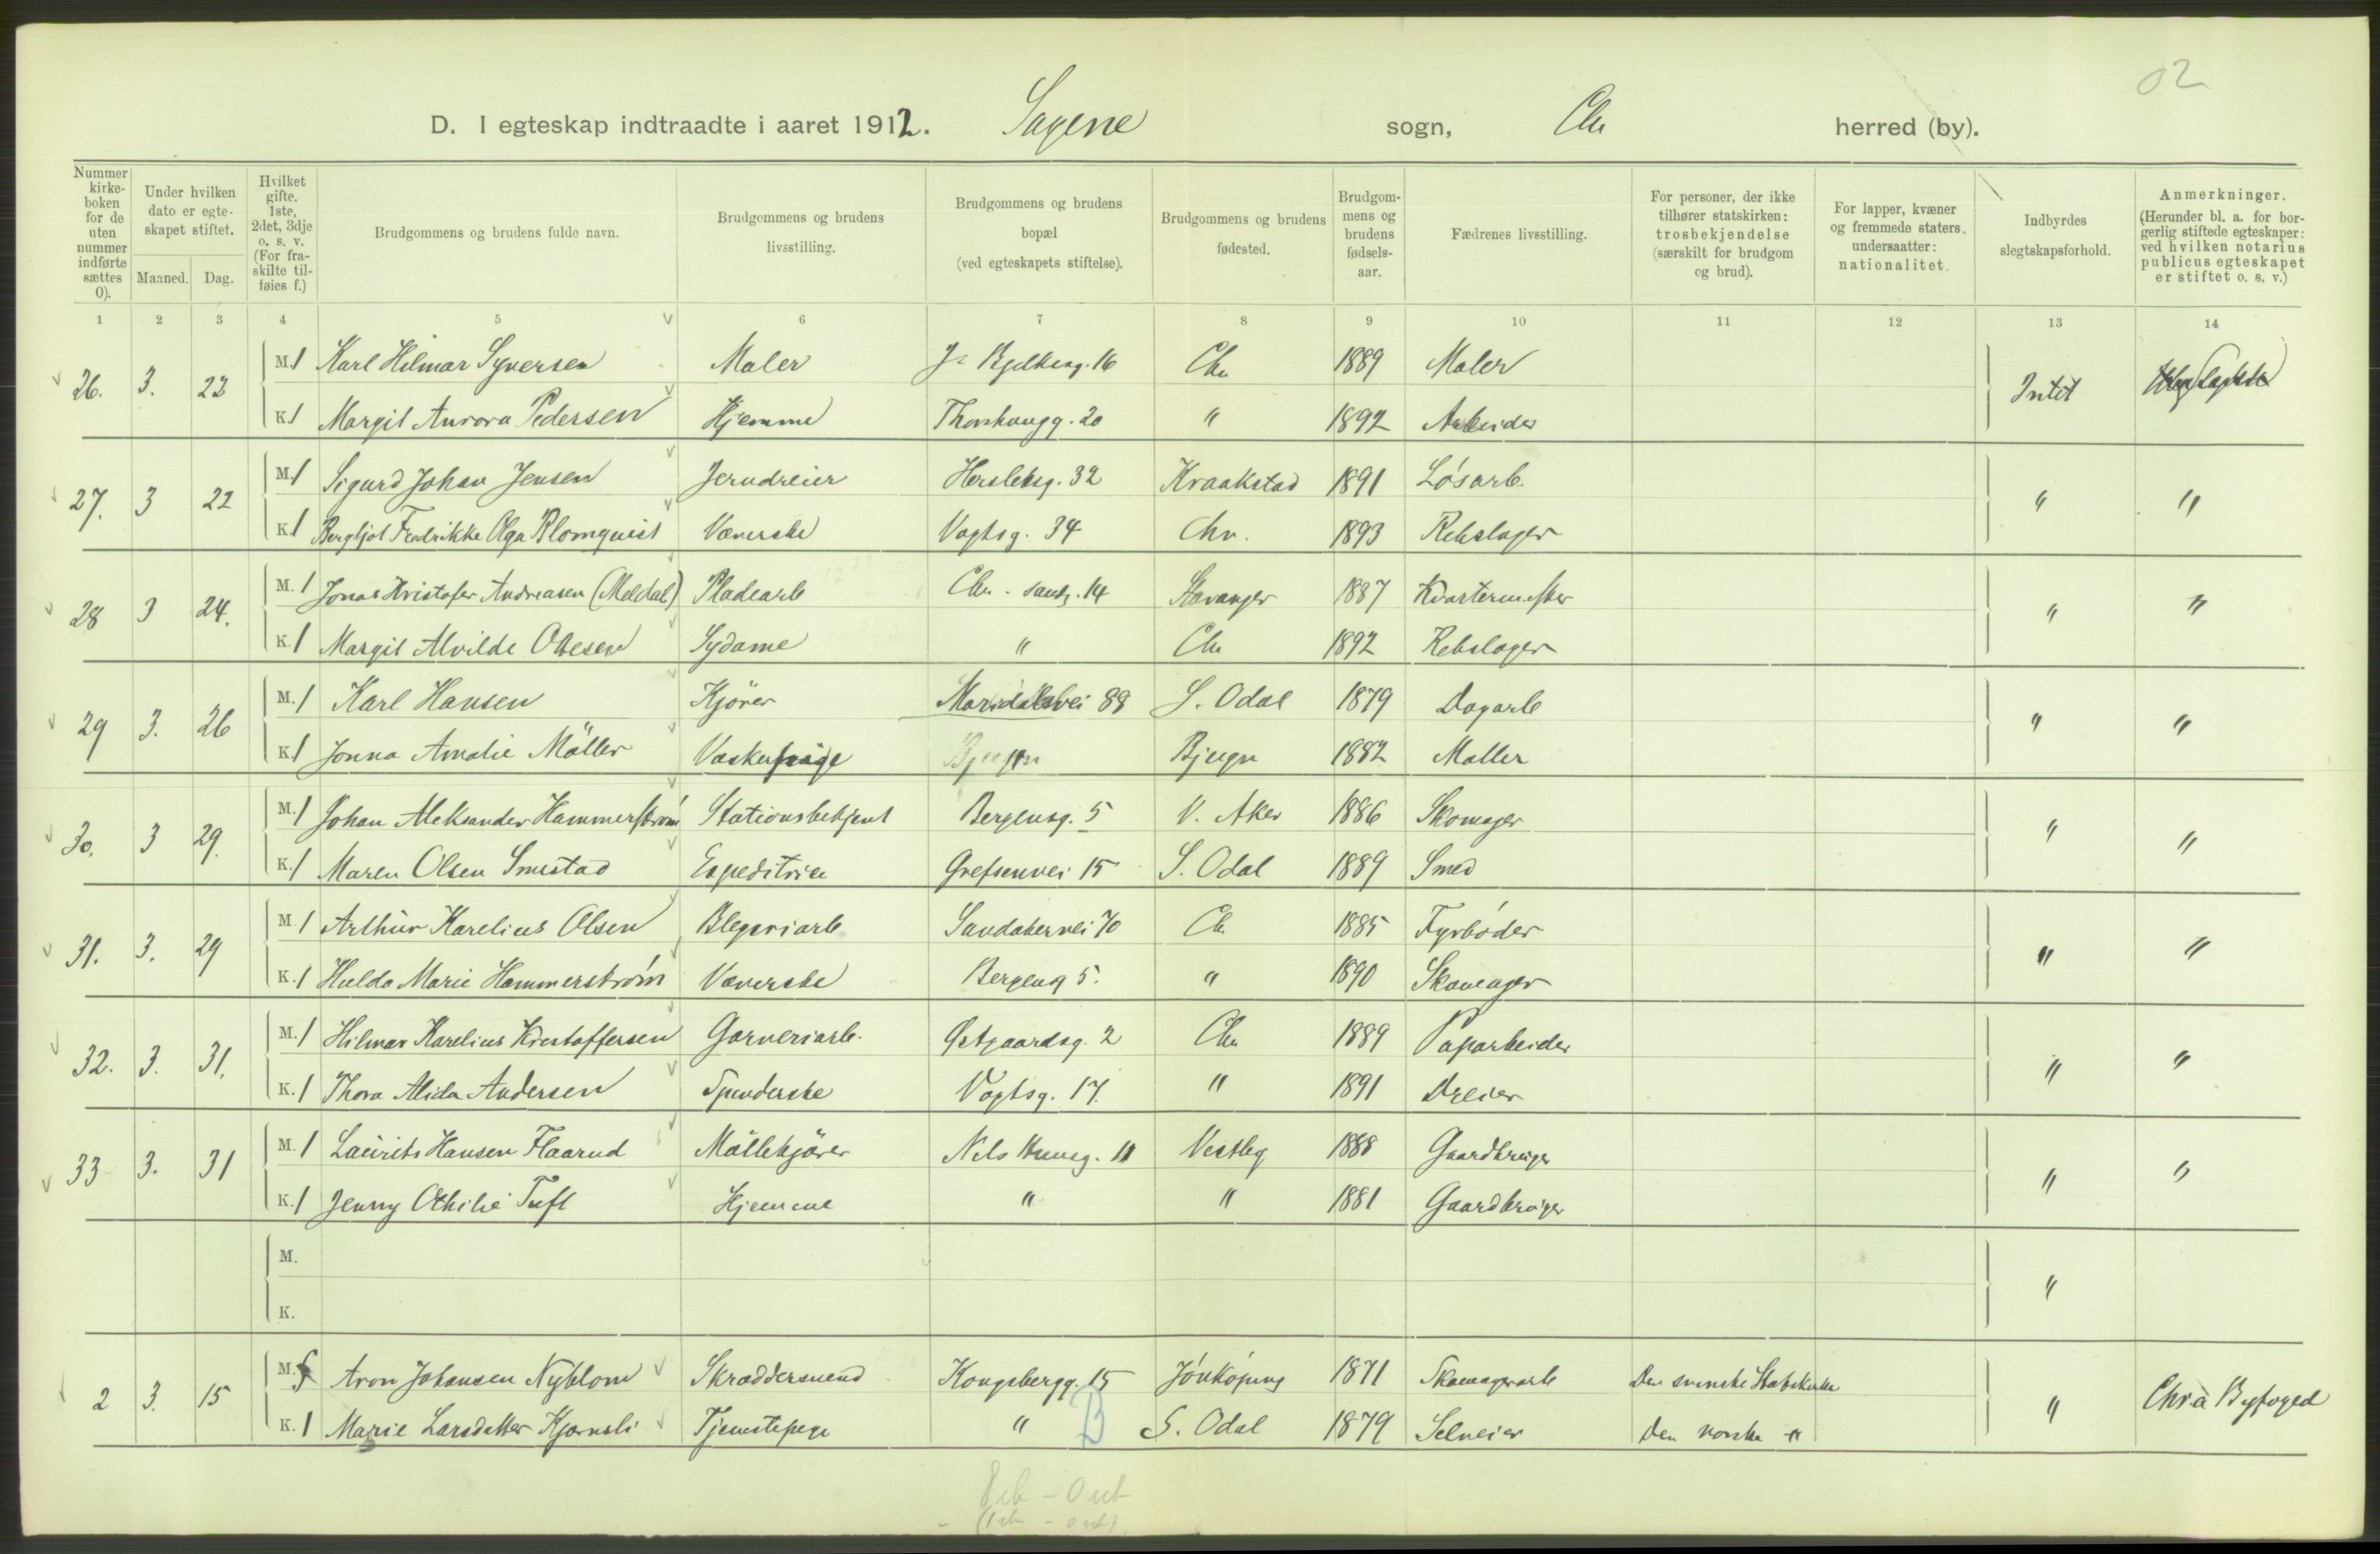 02
D. I egteskap indtraadte i aaret 1912. Sagene sogn, Chr herred (by).
Nummer kirkeboken for de uten nummer indførte sættes 0).
Under hvilken dato er egteskapet stiftet.
Maaned. Dag.
Hvilket gifte. 1ste, 2det, 3dje o. s. v. (For fraskilte tilføies f.)
Brudgommens og brudens fulde navn.
Brudgommens og brudens livsstilling.
Brudgommens og brudens bopæl (ved egteskapets stiftelse).
Brudgommens og brudens fødested.
Brudgommens og brudens fødselsaar.
Fædrenes livsstilling.
For personer, der ikke tilhører statskirken: trosbekjendelse (særskilt for brudgom og brud).
For lapper, kvæner og fremmede staters undersaatter: nationalitet.
Indbyrdes slegtskapsforhold.
Anmerkninger. (Herunder bl. a. for borgerlig stiftede egteskaper: ved hvilken notarius publicus egteskapet er stiftet o. s. v.)
1 2 3 4 5 6 7 8 9 10 11 12 13 14
26. 3. 22 M. 1 Karl Hilmar Syversen Maler Js Bjelkesg. 16 Chr 1889 Maler Intet
K. 1 Margit Aurora Pedersen Hjemme Thorshaugg. 20 " 1892 Arbeider
27. 3 22 M. 1 Sigurd Johan Jensen Jerndreier Herslebsg. 32 Kraakstad 1891 Løsarb. " "
K. 1 Bergljot Fredrikke Olga Blomquist Væverske Vogtsg. 34 Chr. 1893 Rebslager
28 3 24. M. 1 Jonas Kristofer Andreasen (Meldal) Pladearb Chr. sandg. 14 Stavanger 1887 Kvartermester " "
K. 1 Margit Alvilde Olesen Sydame " Chr 1892 Rebslager
29 3. 26 M. 1 Karl Hansen Kjører Maridalsvei 88 S. Odal 1879 Dagarb " "
K. 1 Jonna Amalie Möller Vaskeripige " Bjugn 1882 Møller
30. 3 29. M. 1 Johan Aleksander Hammerstrøm Stationsbetjent Bergensg. 5 V. Aker 1886 Skomager " "
K. 1 Maren Olsen Smestad Expeditrice Grefsenvei 15 S. Odal 1889 Smed
31. 3. 29 M. 1 Arthur Karelius Olsen Blegeriarb Sandakervei 70 Chr 1885 Fyrbøder " "
K. 1 Hulda Marie Hammerstrøm Væverske Bergensg 5. " 1890 Skomager
32. 3. 31. M. 1 Hilmar Karelius Kristoffersen Garveriarb. Østgaardsg. 2 Chr 1889 Paparbeider " "
K. 1 Thora Alida Andersen Spinderske Vogtsg. 17. " 1891 Dreier
33 3. 31 M. 1 Laurits Hansen Flaarud Møllekjører Nels Huusg. 11 Vestby 1888 Gaardbruger " "
K. 1 Jenny Othilie Tuft Hjemme " " 1881 Gaardbruger
M. "
K.
2 3. 15 M. f Aron Johansen Nyblom Skræddersvend Kongsbergg. 15 Jönköping 1871 Skomagerarb Den svenske Statskirke " Chr.a Byfoged
K. 1 Marie Larsdatter Kjørnsli Tjenestepige " B S. Odal 1879 Selveier Den norske "